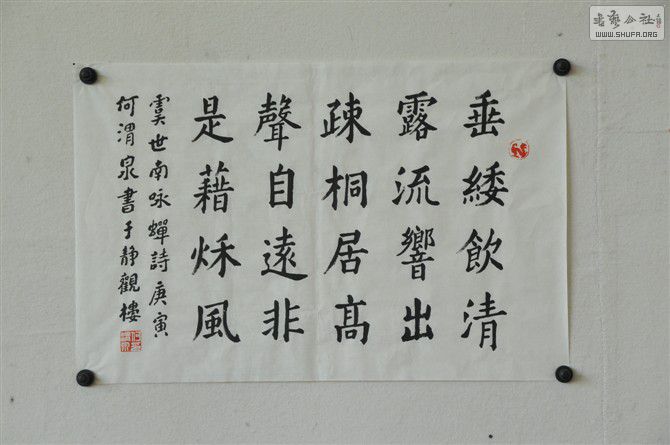 垂緌飲清
露流響出
疎桐居高
聲自遠非
是藉秌風
虞世南咏蟬詩庚寅
何渭泉書于靜觀樓
书艺公社
WWW.SHUFA.ORG